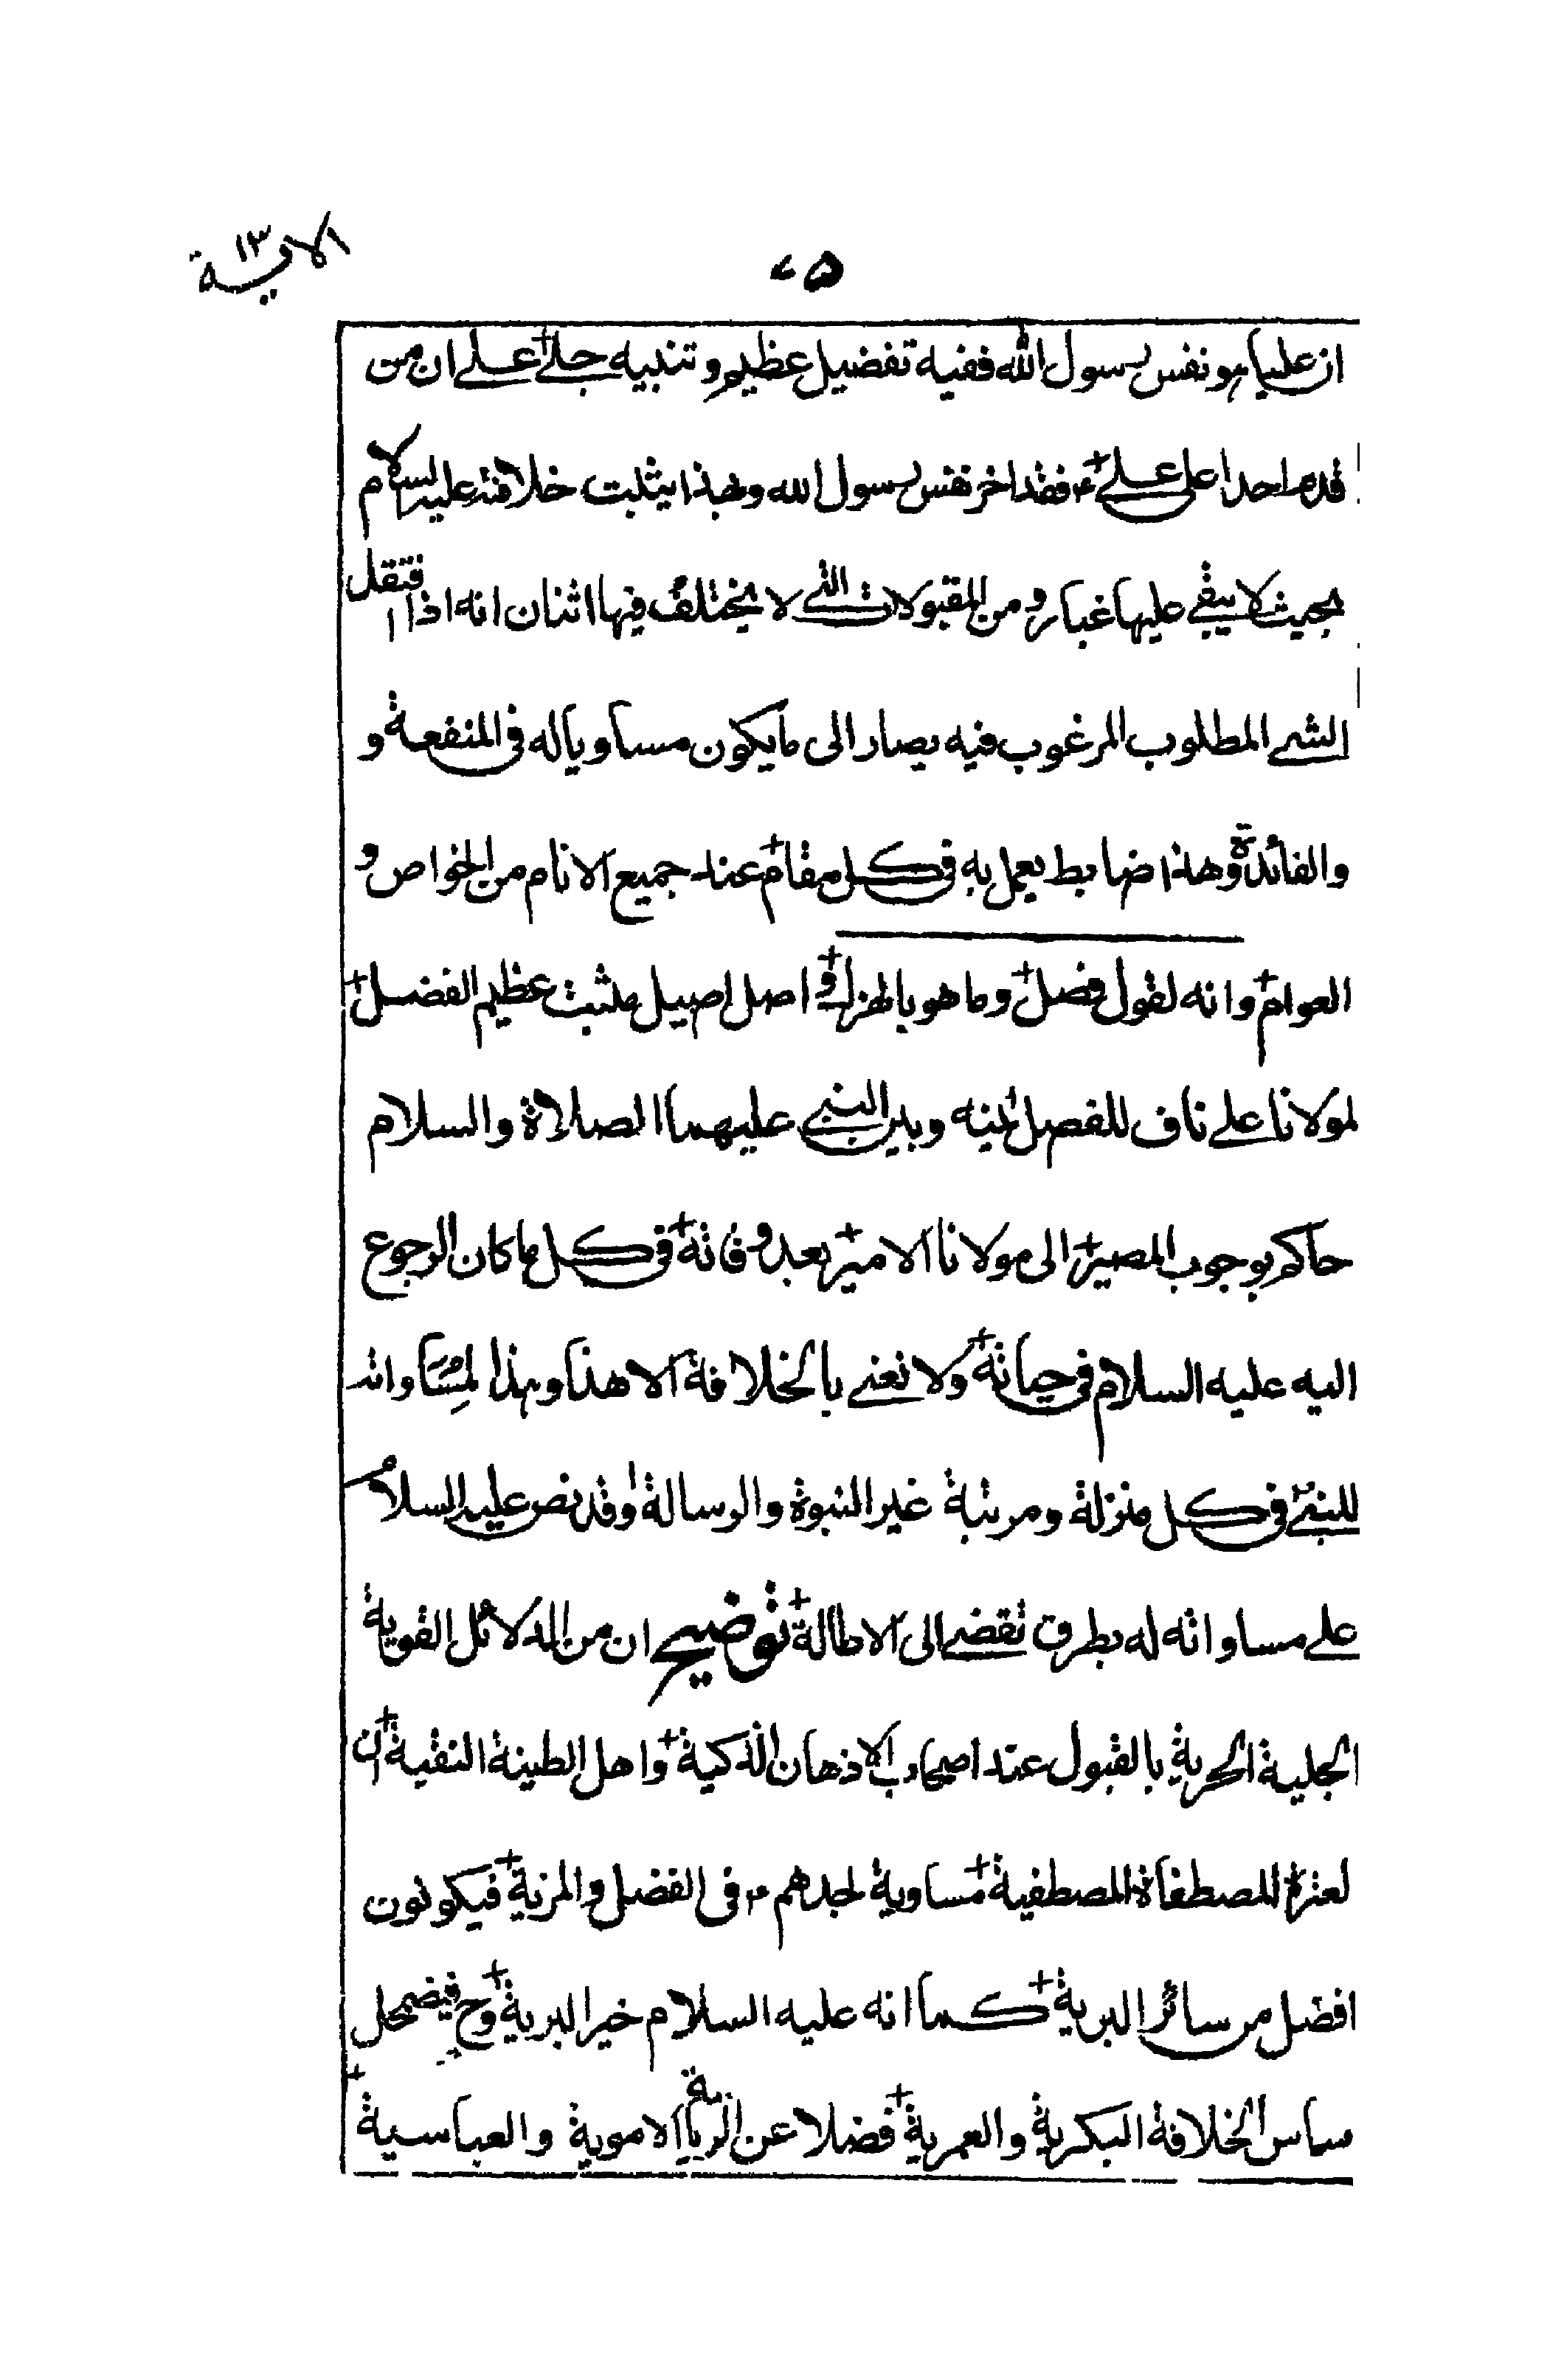 الاية ١٣
٧٥
ان عليا هو نفس رسول الله ففيه تفضيل عظيم وتنبيه جلي على ان من
قدم احدا على علي فقد اخر نفس رسول الله وبهذا يثبت خلافته عليه السلام
بحيث لا يبقى عليها غبار ومن المقبولات التي لا يختلف فيها اثنان انه اذا انتقل
الشي المطلوب المرغوب فيه يصار الى ما يكون مساويا له في المنفعة و
والفائدة وهذا ضابط يعمل به في كل مقام عند جميع الانام من الخواص و
العوام وانه لقول فصل وما هو بالهزل و اصل اصيل مثبت عظيم الفضل
لمولانا علي ناف للفصل بينه وبين النبي عليهما الصلاة والسلام
حاكم بوجوب المصير الى مولانا الامير بعد وفاته في كل ما كان الرجوع
اليه عليه السلام في حياته ولا نعني بالخلافة الا هذا وبهذا لمساواته
للنبي في كل منزلة ومرتبة غير النبوة والرسالة وقد نص عليه السلام
علي مساواته له بطرق تفضي الى الاطالة توضيح ان من الدلائل القوية
الجلية الحرية بالقبول عند اصحاب الاذهان الذكية واهل الطينة النقية ان
لعترة المصطفاة المصطفية مساوية لجدهم في الفضل والمزية فيكونون
افضل من سائر البرية كما انه عليه السلام خير البرية وح فيضمحل
ساس الخلافة البكرية والعمرية فضلا عن الاموية والعباسية